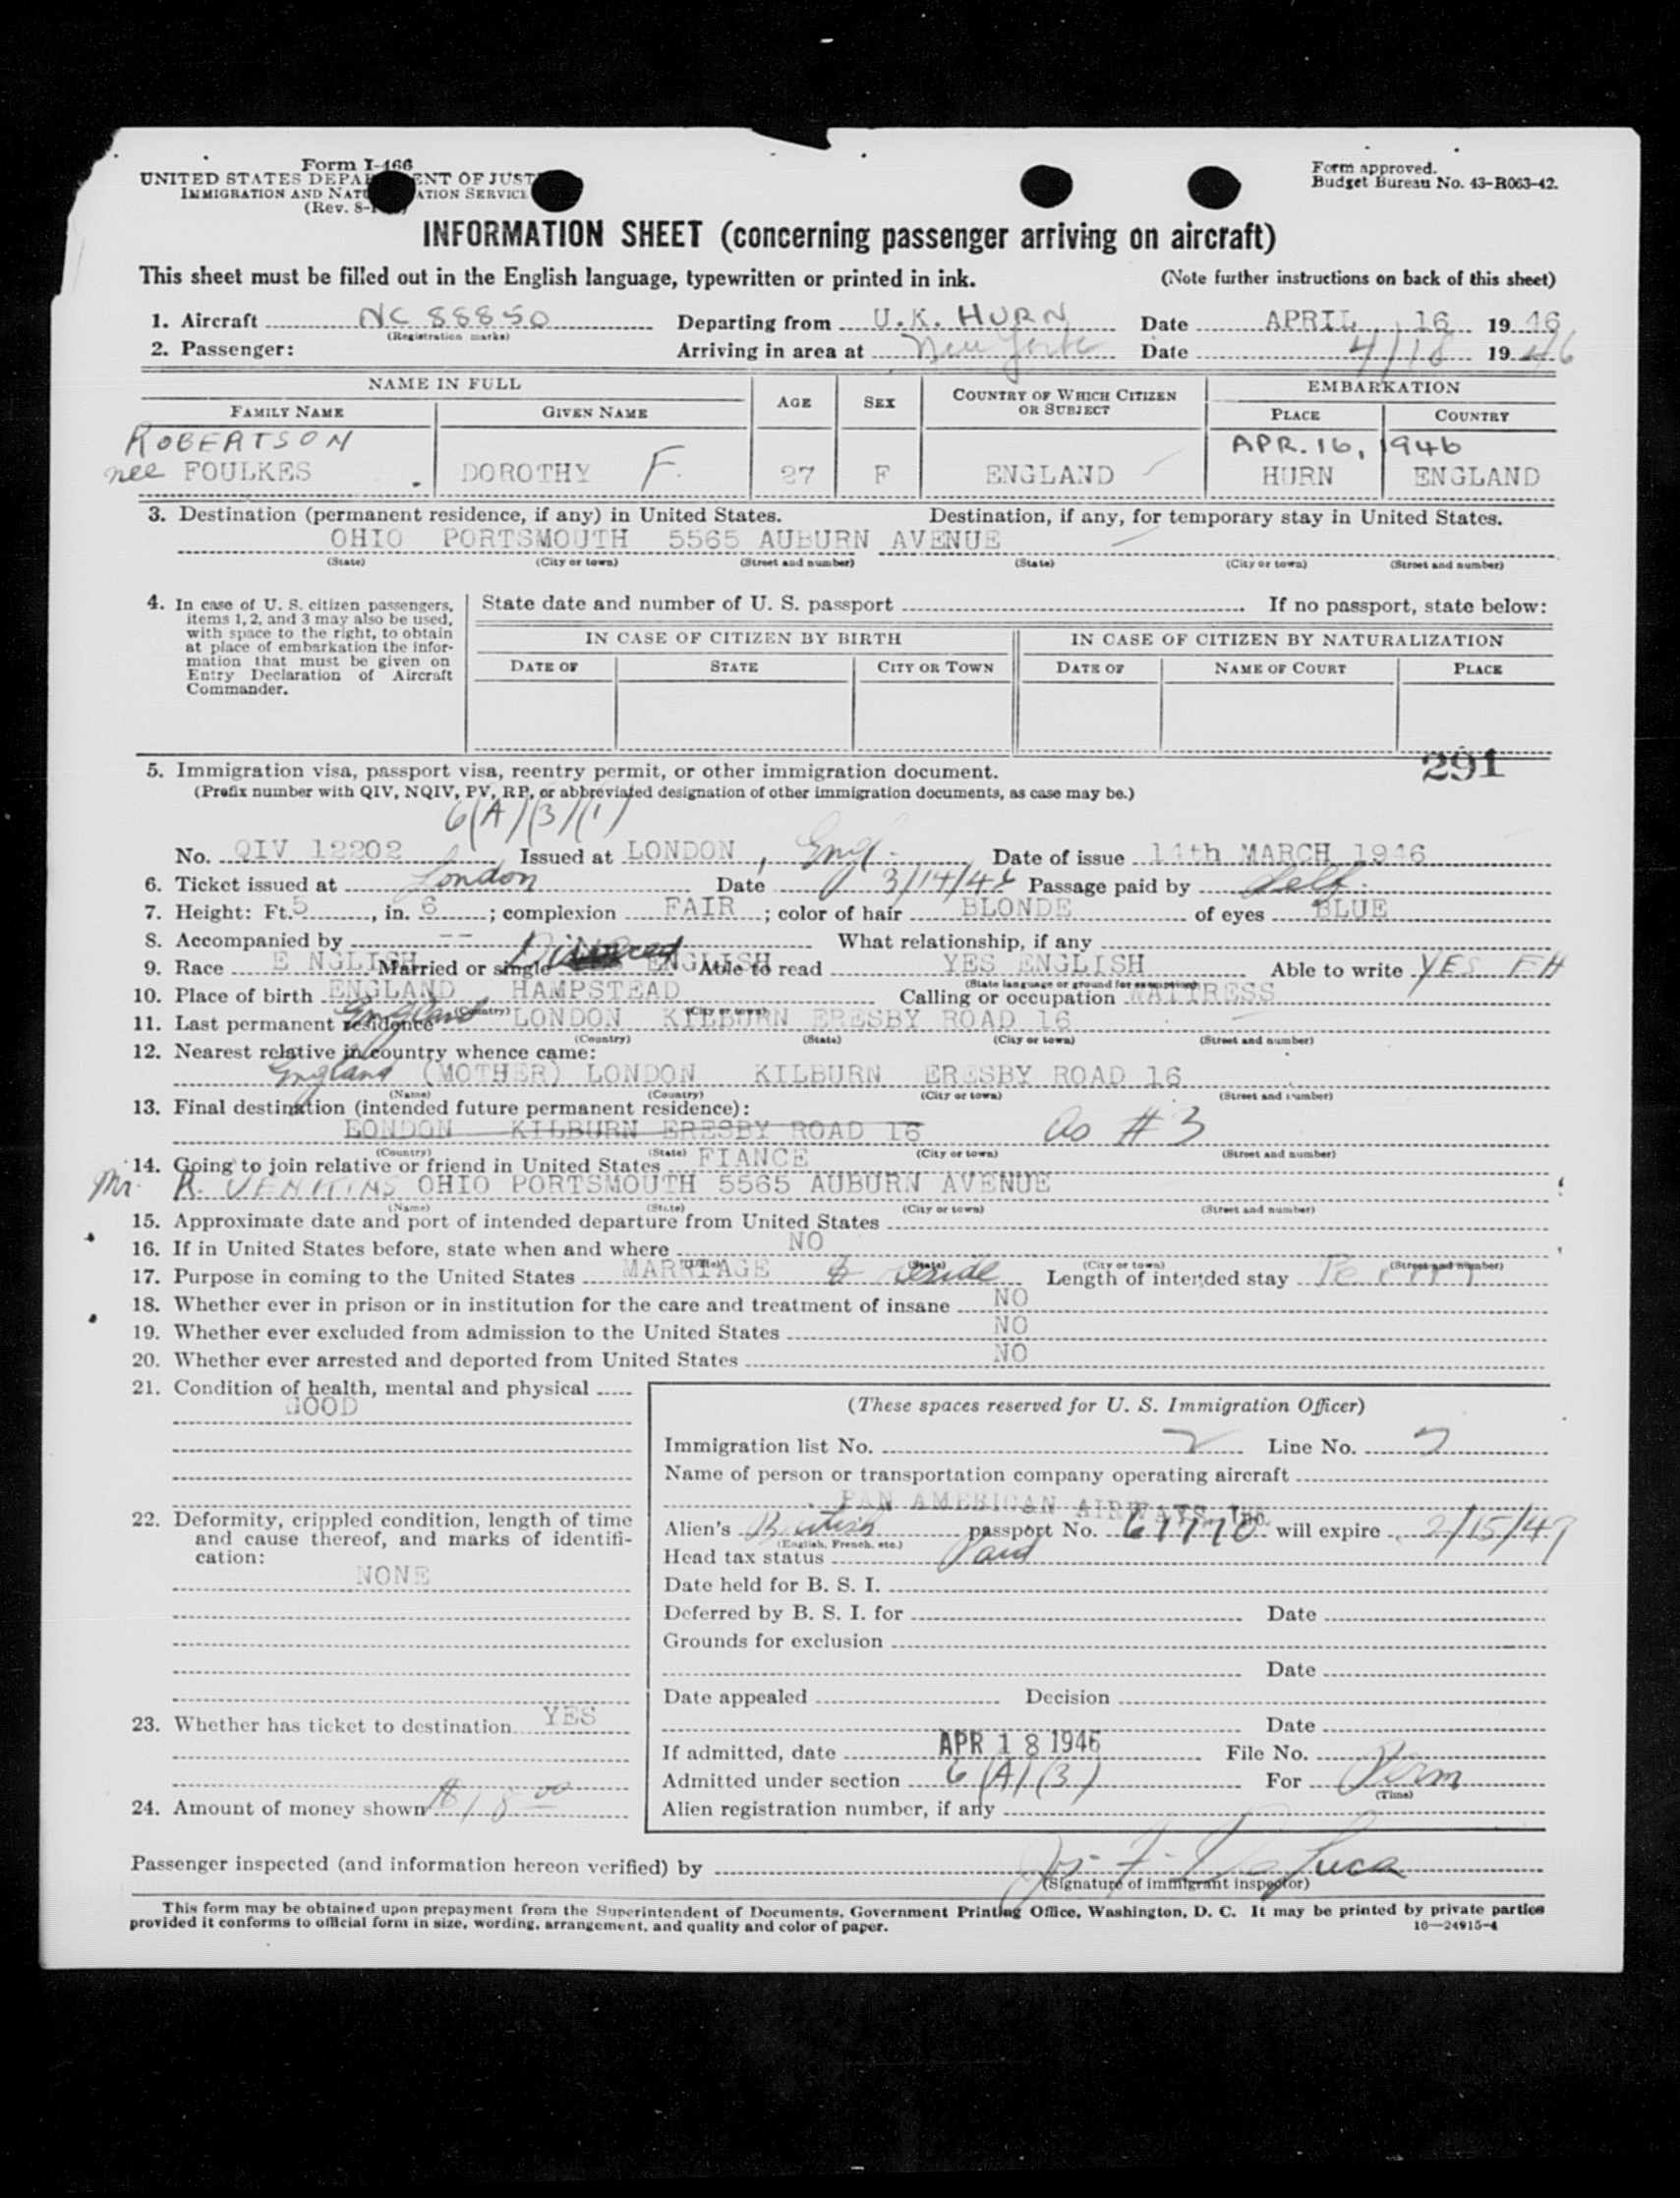 Form I-466
UNITED STATES DEPA ENT OF JUST
IMMIGRATION AND NAT ATION SERVICE
(Rev. 8-
Form approved.
Budget Bureau No. 43-R063-42.
INFORMATION SHEET (concerning passenger arriving on aircraft)
This sheet must be filled out in the English language, typewritten or printed in ink. (Note further instructions on back of this sheet)
1. Aircraft NC 88850 Departing from U.K. HURN Date APRIL 16 1946
(Registration marks)
2. Passenger: Arriving in area at New York Date 4/18 1946
NAME IN FULL AGE SEX COUNTRY OF WHICH CITIZEN OR SUBJECT EMBARKATION
FAMILY NAME GIVEN NAME PLACE COUNTRY
ROBERTSON APR. 16, 1946
nee FOULKES DOROTHY F. 27 F ENGLAND HURN ENGLAND
3. Destination (permanent residence, if any) in United States. Destination, if any, for temporary stay in United States.
OHIO PORTSMOUTH 5565 AUBURN AVENUE
(State) (City or town) (Street and number) (State) (City or town) (Street and number)
4. In case of U. S. citizen passengers, items 1, 2, and 3 may also be used, with space to the right, to obtain at place of embarkation the information that must be given on Entry Declaration of Aircraft Commander.
State date and number of U. S. passport If no passport, state below:
IN CASE OF CITIZEN BY BIRTH IN CASE OF CITIZEN BY NATURALIZATION
DATE OF STATE CITY OR TOWN DATE OF NAME OF COURT PLACE
291
5. Immigration visa, passport visa, reentry permit, or other immigration document.
(Prefix number with QIV, NQIV, PV, RP, or abbreviated designation of other immigration documents, as case may be.)
6(A)(3)(1)
No. QIV 12202 Issued at LONDON, Engl. Date of issue 14th MARCH 1946
6. Ticket issued at London Date 3/14/46 Passage paid by Self.
7. Height: Ft. 5, in. 6; complexion FAIR; color of hair BLONDE of eyes BLUE
8. Accompanied by -- What relationship, if any
9. Race ENGLISH Married or single Divorced ENGLISH Able to read YES ENGLISH Able to write YES
(State language or ground for exemption)
10. Place of birth ENGLAND HAMPSTEAD Calling or occupation WAITRESS
(Country) (City or town)
11. Last permanent residence England LONDON KILBURN ERESBY ROAD 16
(Country) (State) (City or town) (Street and number)
12. Nearest relative in country whence came:
England (MOTHER) LONDON KILBURN ERESBY ROAD 16
(Name) (Country) (City or town) (Street and number)
13. Final destination (intended future permanent residence):
LONDON KILBURN ERESBY ROAD 16 as #3
(Country) (State) (City or town) (Street and number)
14. Going to join relative or friend in United States FIANCE
Mr. R. JENKINS OHIO PORTSMOUTH 5565 AUBURN AVENUE
(Name) (State) (City or town) (Street and number)
15. Approximate date and port of intended departure from United States
16. If in United States before, state when and where NO
(State) (City or town) (Street and number)
17. Purpose in coming to the United States MARRIAGE & reside Length of intended stay Perm
18. Whether ever in prison or in institution for the care and treatment of insane NO
19. Whether ever excluded from admission to the United States NO
20. Whether ever arrested and deported from United States NO
21. Condition of health, mental and physical
GOOD
22. Deformity, crippled condition, length of time and cause thereof, and marks of identification:
NONE
23. Whether has ticket to destination YES
24. Amount of money shown $18 00
(These spaces reserved for U. S. Immigration Officer)
Immigration list No. 2 Line No. 7
Name of person or transportation company operating aircraft
PAN AMERICAN AIRWAYS, Inc.
Alien's British passport No. will expire 2/15/47
(English, French, etc.)
Head tax status Paid
Date held for B. S. I.
Deferred by B. S. I. for Date
Grounds for exclusion
Date
Date appealed Decision
Date
If admitted, date APR 18 1946 File No.
Admitted under section 6(A)(3) For Perm
(Time)
Alien registration number, if any
Passenger inspected (and information hereon verified) by Jos. F. De Luca
(Signature of immigrant inspector)
This form may be obtained upon prepayment from the Superintendent of Documents, Government Printing Office, Washington, D. C. It may be printed by private parties
provided it conforms to official form in size, wording, arrangement, and quality and color of paper. 16—24915-4